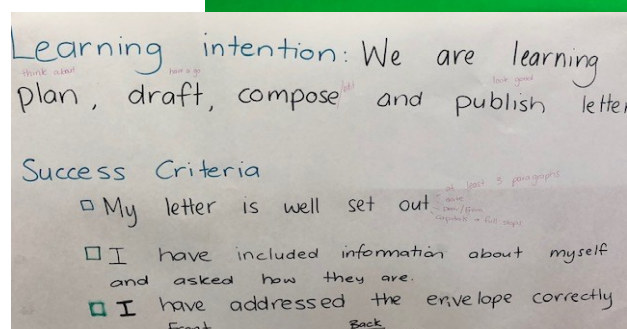 Learning intention: We are learning
think about have a go look good
plan, draft, compose and publish letter
Success Criteria
at least 3 paragraphs
□ My letter is well set out
□ I have included information about myself
and asked how they are.
□ I have addressed the envelope correctly
Front Back